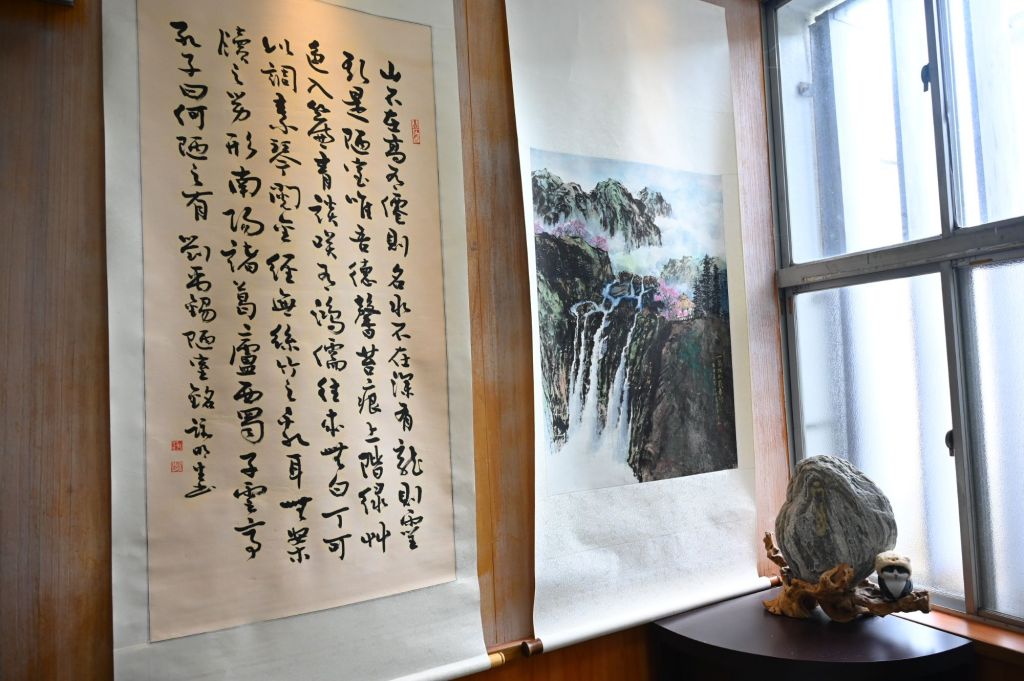 山不在高有僊則名水不在深有龍則靈
斯是陋室唯吾德馨苔痕上階綠艸
色入簾青談咲有鴻儒往來無白丁可
以調素琴閱金經無絲竹之亂耳無案
牘之勞形南陽諸葛廬西蜀子雲亭
孔子曰何陋之有 劉禹錫陋室銘 明書